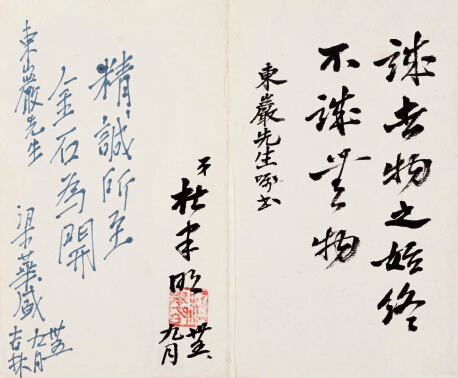 誠者物之始終
不誠無物
東巖先生嘱书
弟 杜聿明
卅五、九月
精誠所至
金石為開
東巖先生
梁華盛
卅五
九月
吉林